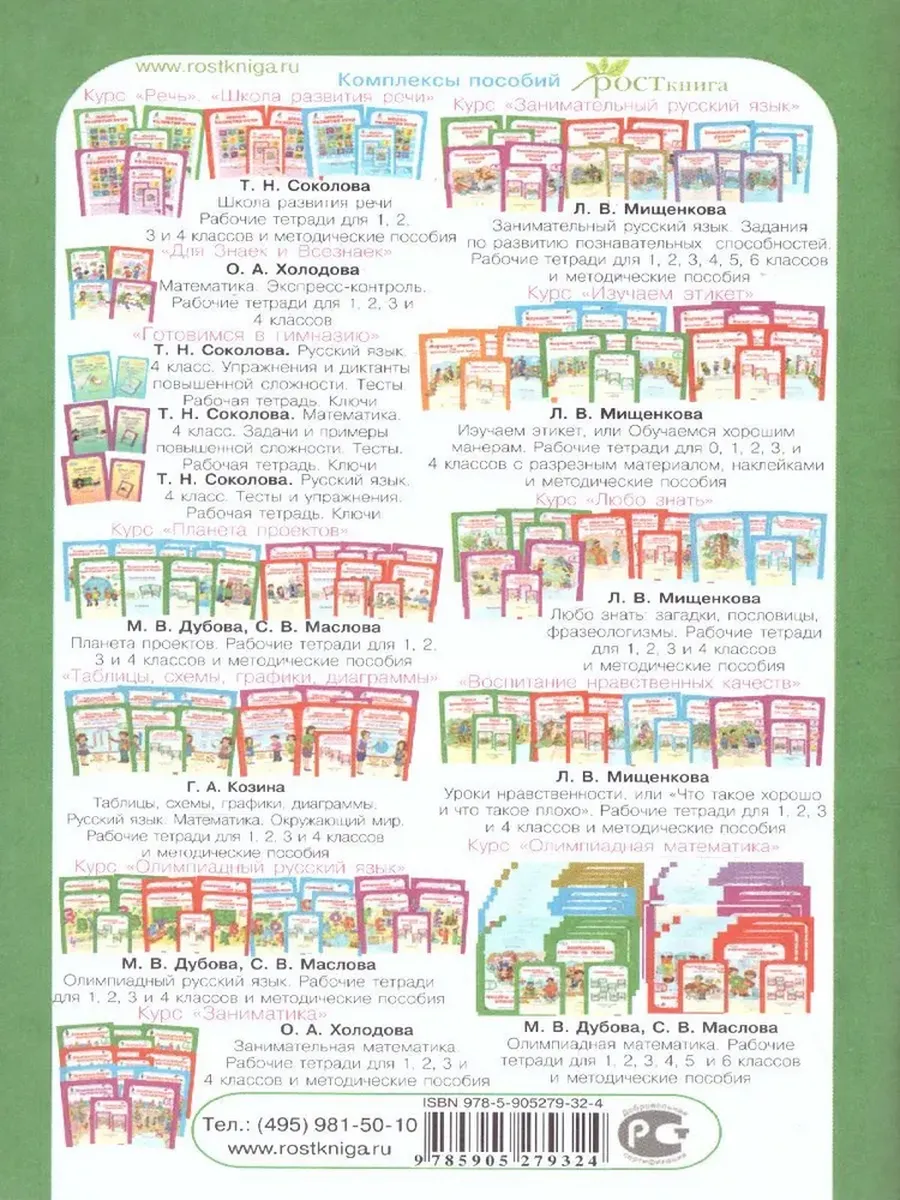 www.rostkniga.ru
Комплексы пособий
РОСТкнига
Курс «Речь». «Школа развития речи»
Т. Н. Соколова
Школа развития речи
Рабочие тетради для 1, 2,
3 и 4 классов и методические пособия
«Для Знаек и Всезнаек»
О. А. Холодова
Математика. Экспресс-контроль.
Рабочие тетради для 1, 2, 3 и
4 классов
«Готовимся в гимназию»
Т. Н. Соколова. Русский язык.
4 класс. Упражнения и диктанты
повышенной сложности. Тесты
Рабочая тетрадь. Ключи
Т. Н. Соколова. Математика.
4 класс. Задачи и примеры
повышенной сложности. Тесты.
Рабочая тетрадь. Ключи
Т. Н. Соколова. Русский язык.
4 класс. Тесты и упражнения.
Рабочая тетрадь. Ключи
Курс «Планета проектов»
М. В. Дубова, С. В. Маслова
Планета проектов. Рабочие тетради для 1, 2,
3 и 4 классов и методические пособия
«Таблицы, схемы, графики, диаграммы»
Г. А. Козина
Таблицы, схемы, графики, диаграммы.
Русский язык. Математика. Окружающий мир.
Рабочие тетради для 1, 2, 3 и 4 классов
и методические пособия
Курс «Олимпиадный русский язык»
М. В. Дубова, С. В. Маслова
Олимпиадный русский язык. Рабочие тетради
для 1, 2, 3 и 4 классов и методические пособия
Курс «Заниматика»
О. А. Холодова
Занимательная математика.
Рабочие тетради для 1, 2, 3 и
4 классов и методические пособия
Курс «Занимательный русский язык»
Л. В. Мищенкова
Занимательный русский язык. Задания
по развитию познавательных способностей.
Рабочие тетради для 1, 2, 3, 4, 5, 6 классов
и методические пособия
Курс «Изучаем этикет»
Л. В. Мищенкова
Изучаем этикет, или Обучаемся хорошим
манерам. Рабочие тетради для 0, 1, 2, 3, и
4 классов с разрезным материалом, наклейками
и методические пособия
Курс «Любо знать»
Л. В. Мищенкова
Любо знать: загадки, пословицы,
фразеологизмы. Рабочие тетради
для 1, 2, 3 и 4 классов
и методические пособия
«Воспитание нравственных качеств»
Л. В. Мищенкова
Уроки нравственности, или «Что такое хорошо
и что такое плохо». Рабочие тетради для 1, 2, 3
и 4 классов и методические пособия
Курс «Олимпиадная математика»
М. В. Дубова, С. В. Маслова
Олимпиадная математика. Рабочие
тетради для 1, 2, 3, 4, 5 и 6 классов
и методические пособия
Тел.: (495) 981-50-10
www.rostkniga.ru
ISBN 978-5-905279-32-4
9 785905 279324
Добровольная
сертификация